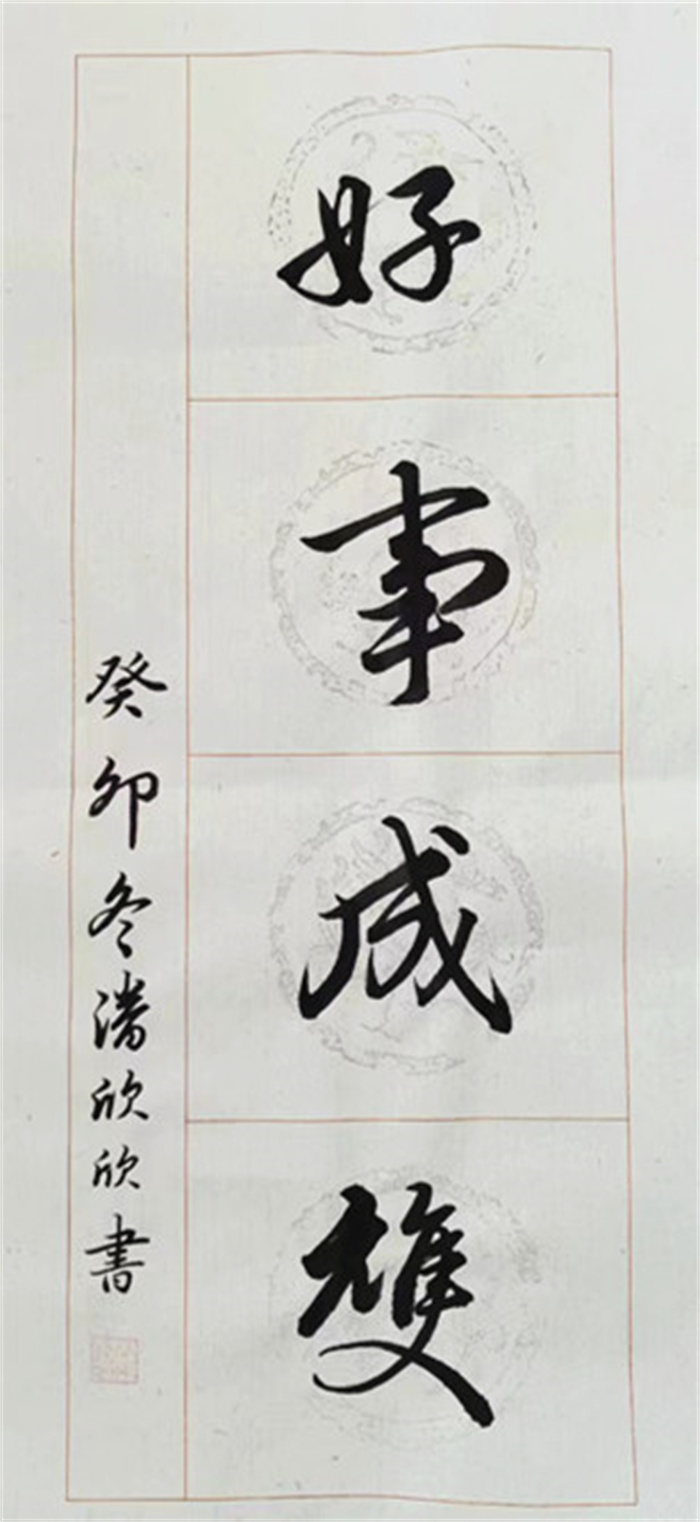 好事成雙
癸卯冬潘欣欣書